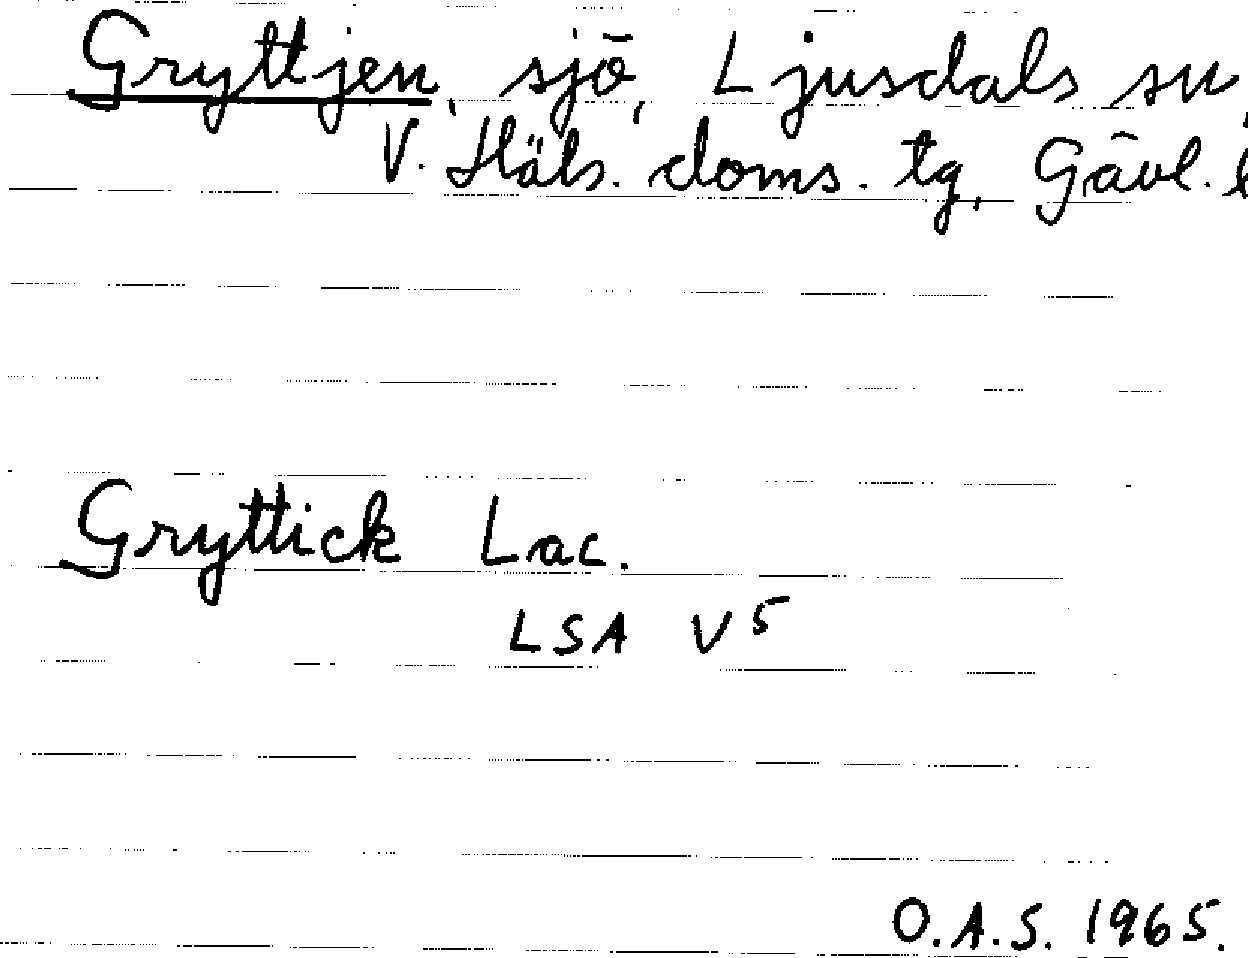 Gryttjen, sjö, Ljusdals sn,
V. Häls. doms. tg, Gävl. l
Gryttick Lac.
LSA V5
O.A.S. 1965.